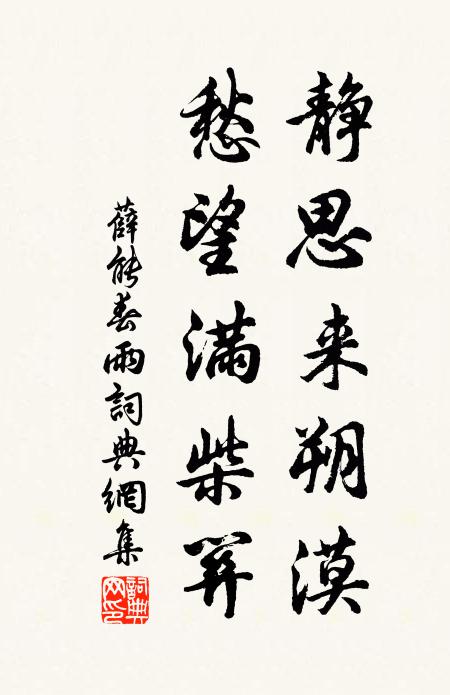 静思来朔漠
愁望满柴關
薛能春雨詞典網集
詞典
网印